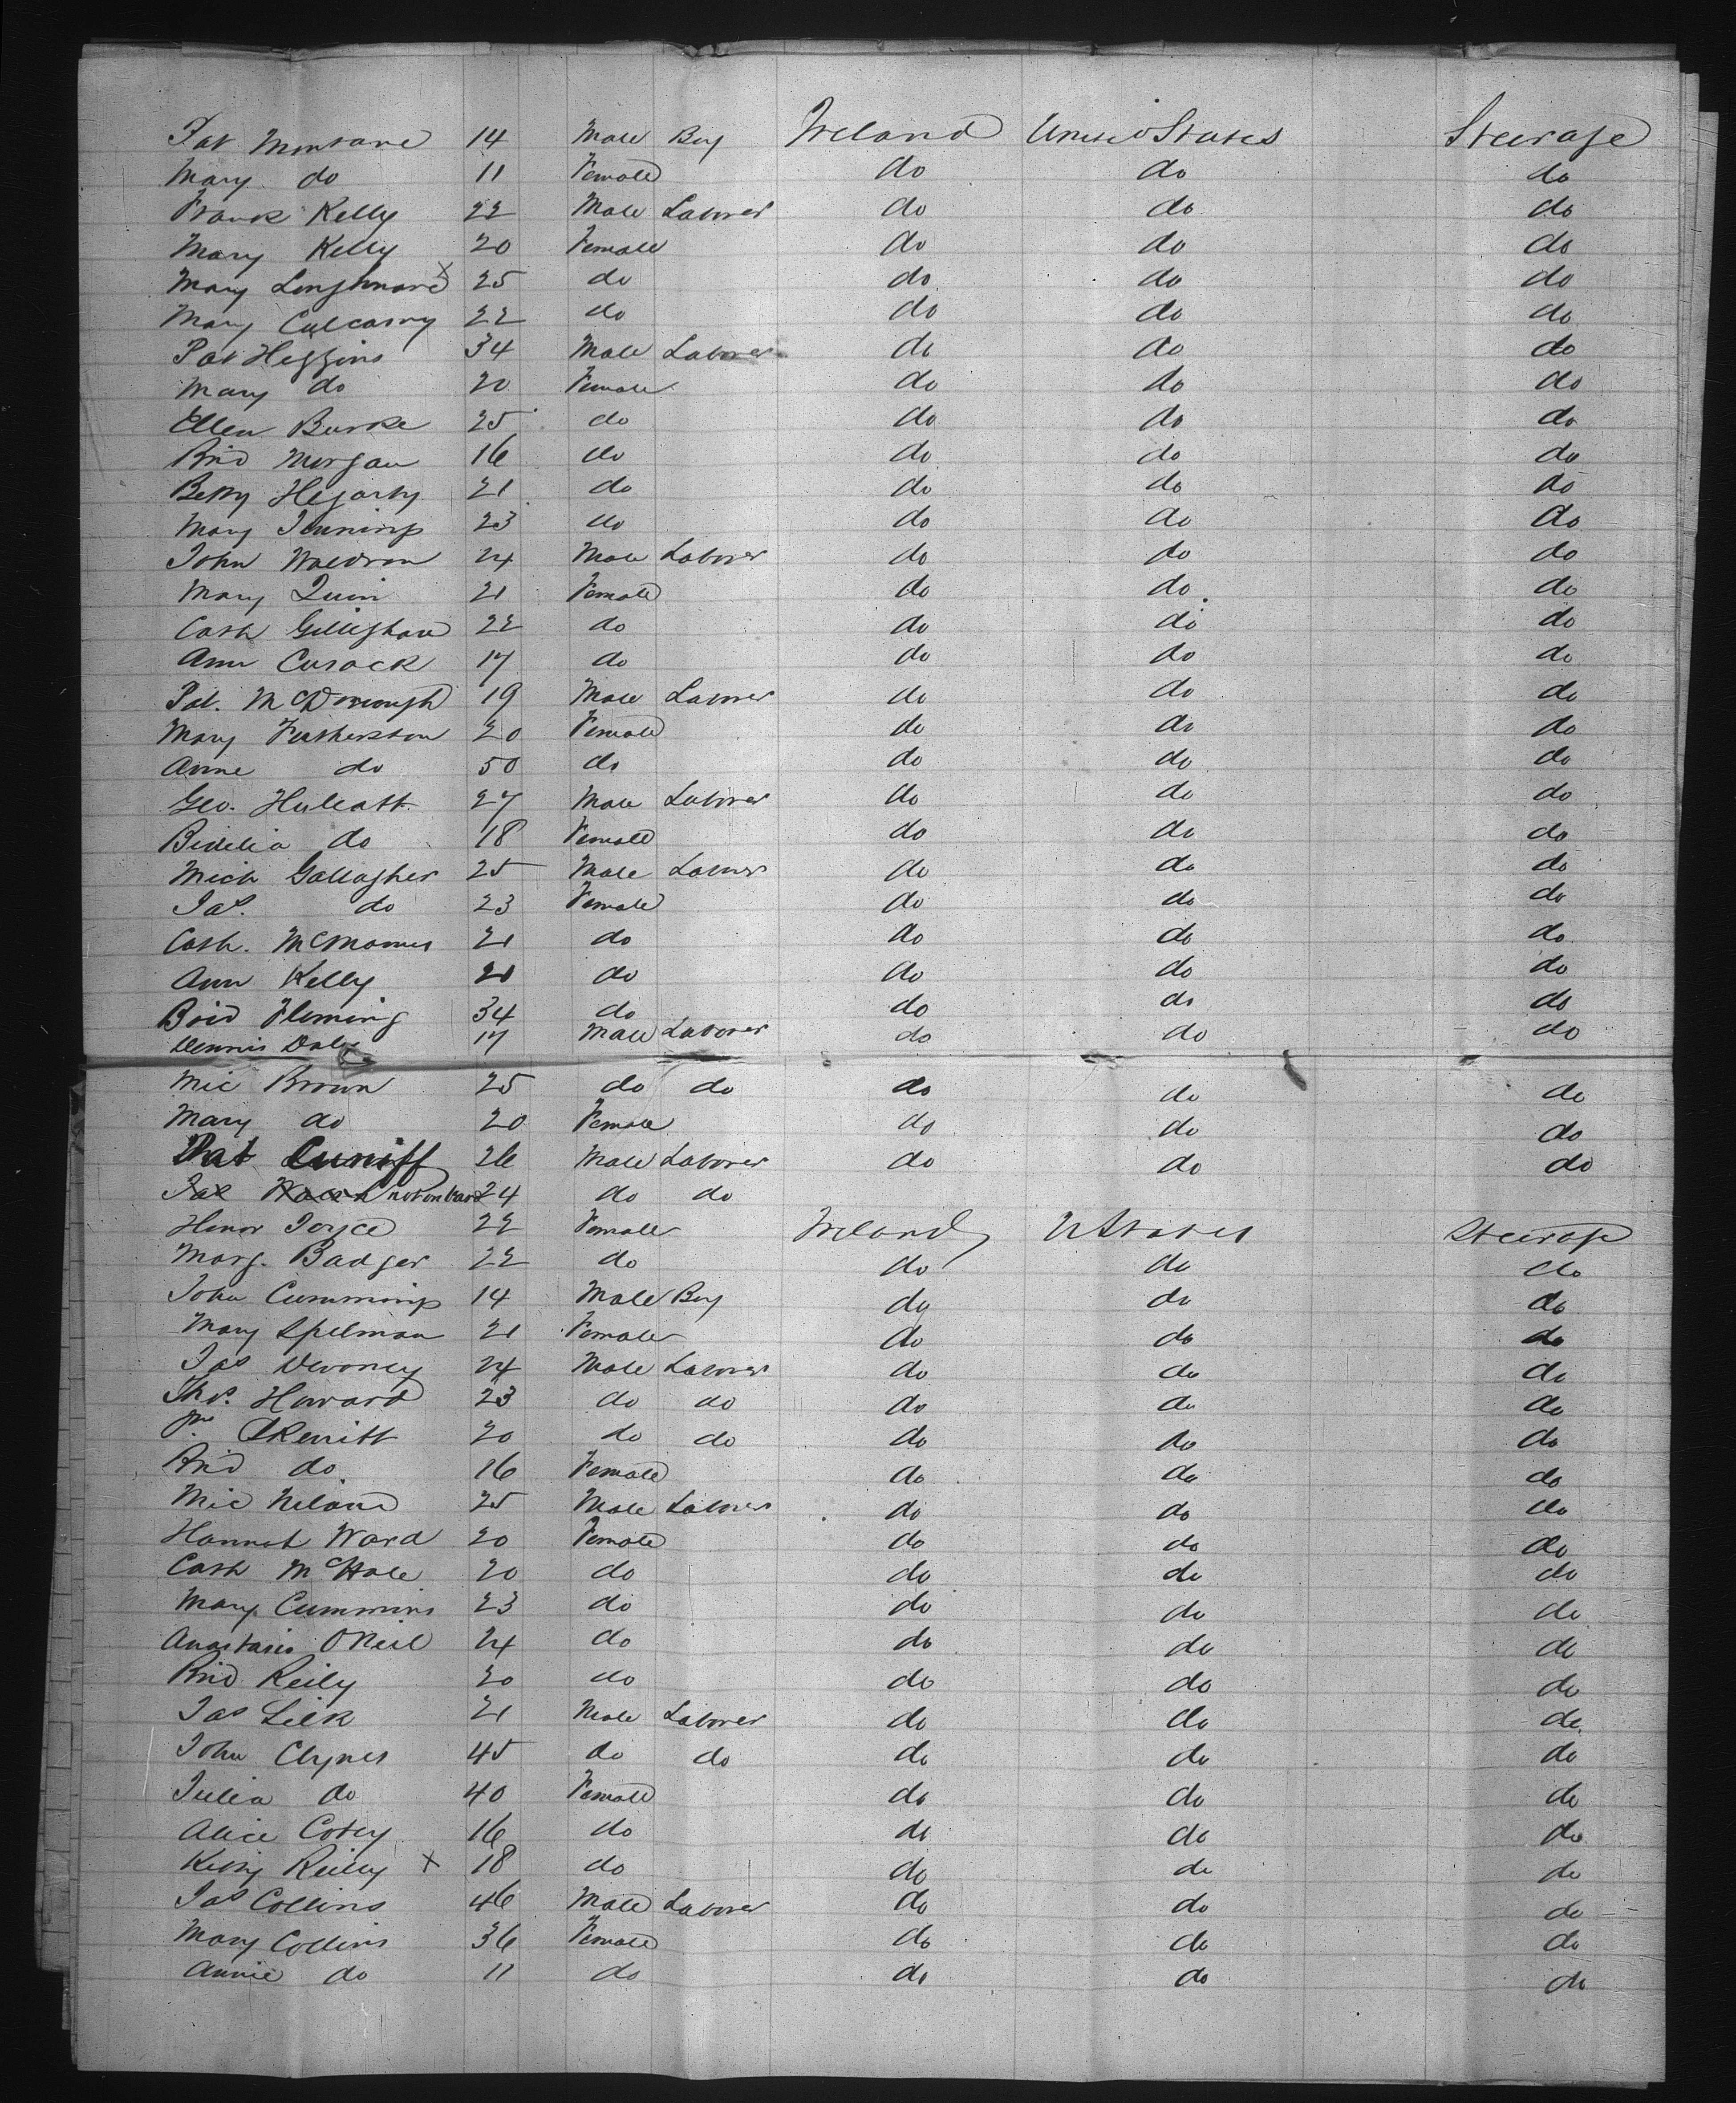 Pat 14 Male Boy Ireland United States Steerage
Mary do 11 Female do do do
Frank Kelly 22 Male Laborer do do do
Mary Kelly 20 Female do do do
Mary x 25 do do do do
Mary 22 do do do do
Pat Higgins 34 Male Laborer do do do
Mary do 20 Female do do do
Ellen Burke 25 do do do do
Brid Morgan 16 do do do do
Betty Hegarty 21 do do do do
Mary Jennings 23 do do do do
John Waldron 24 Male Laborer do do do
Mary Quin 21 Female do do do
Cath Gillighan 22 do do do do
Ann Cusack 17 do do do do
Pat. McDonough 19 Male Laborer do do do
Mary Fetherston 20 Female do do do
Anne do 50 do do do do
Geo. Huleatt 27 Male Laborer do do do
Bidelia do 18 Female do do do
Mich Gallagher 25 Male Laborer do do do
Jas. do 23 Female do do do
Cath. McManus 21 do do do do
Ann Kelly 21 do do do do
Brid Fleming 34 do do do do
Dennis Daly 17 Male Laborer do do do
Mic Brown 25 do do do do do
Mary do 20 Female do do do
Pat Cuniff 26 Male Laborer do do do
Jas Walsh not on board 24 do do
Honor Joyce 22 Female Ireland U States Steerage
Marg. Badger 22 do do do do
John Cummings 14 Male Boy do do do
Mary Spelman 21 Female do do do
Jas Devaney 24 Male Laborer do do do
Thos. Howard 23 do do do do do
P. Skerritt 20 do do do do do
Brid do 16 Female do do do
Mic Niland 25 Male Laborer do do do
Hannah Ward 20 Female do do do
Cath McHale 20 do do do do
Mary Cummins 23 do do do do
Anastasia O'Neil 24 do do do do
Brid Reily 20 do do do do
Jas Lilk 21 Male Laborer do do do
John Clynes 45 do do do do do
Julia do 40 Female do do do
Alice 16 do do do do
Kitty Reilly x 18 do do do do
Jas Collins 46 Male Laborer do do do
Mary Collins 36 Female do do do
Annie do 11 do do do do